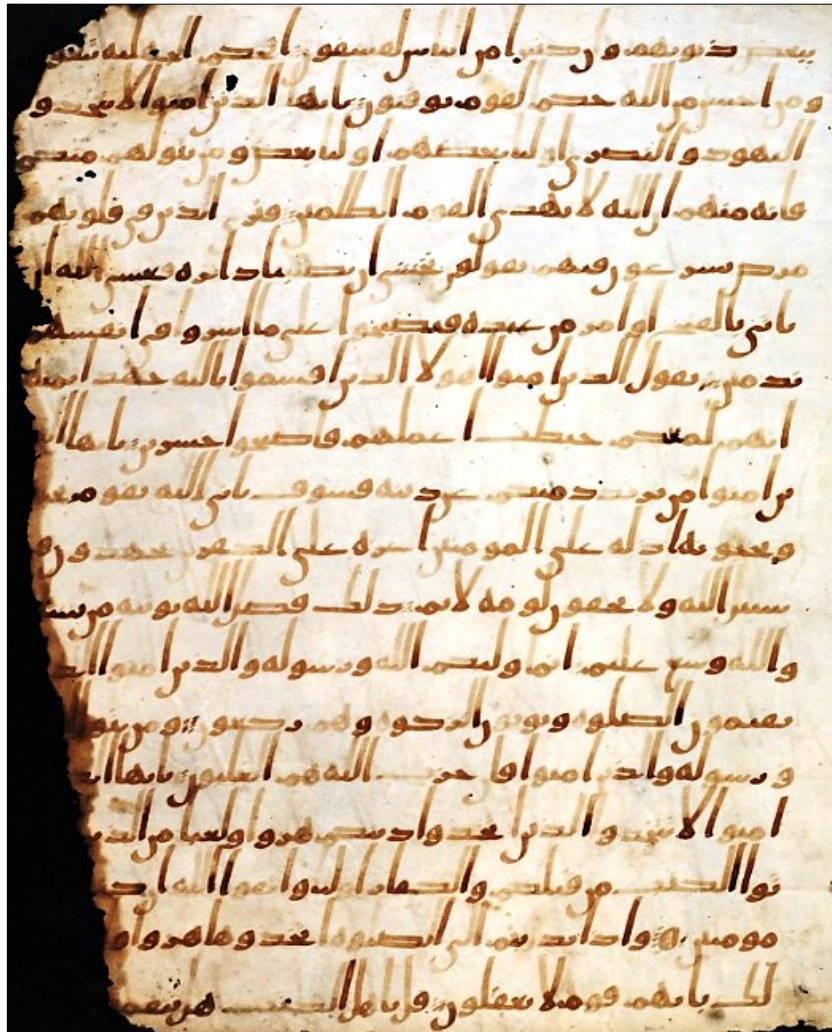 ببعض ذنوبهم وان كثيرا من الناس لفسقون افحكم الجهلية يبغون
ومن احسن من الله حكما لقوم يوقنون يايها الذين امنوا لا تتخذوا
اليهود والنصرى اوليا بعضهم اوليا بعض ومن يتولهم منكم
فانه منهم ان الله لا يهدى القوم الظلمين فترى الذين فى قلوبهم
مرض يسرعون فيهم يقولون نخشى ان تصيبنا دايرة فعسى الله ان
ياتى بالفتح او امر من عنده فيصبحوا على ما اسروا فى انفسهم
ندمين يقول الذين امنوا اهولا الذين اقسموا بالله جهد ايمنه
انهم لمعكم حبطت اعملهم فاصبحوا خسرين يايها الذ
ين امنوا من يرتدد منكم عن دينه فسوف ياتى الله بقوم يحبـ
ويحبونه اذلة على المومنين اعزة على الكفرين يجهدون فى
سبيل الله ولا يخفون لومة لايم ذلك فضل الله يوتيه من يشا
والله وسع عليم انما وليكم الله ورسوله والذين امنوا الذ
يقيمون الصلوة ويوتون الزكوة وهم ركعون ومن يتول ال
ورسوله والذين امنوا فان حزب الله هم الغلبون يايها الذ
امنوا لا تتخذوا الذين اتخذوا دينكم هزوا ولعبا من الذين
توا الكتب من قبلكم والكفار اوليا واتقوا الله ان كـ
مومنين واذا نديتم الى الصلوة اتخذوها هزوا و
لك بانهم قوم لا يعقلون قل ياهل الكتب هل تنقمو